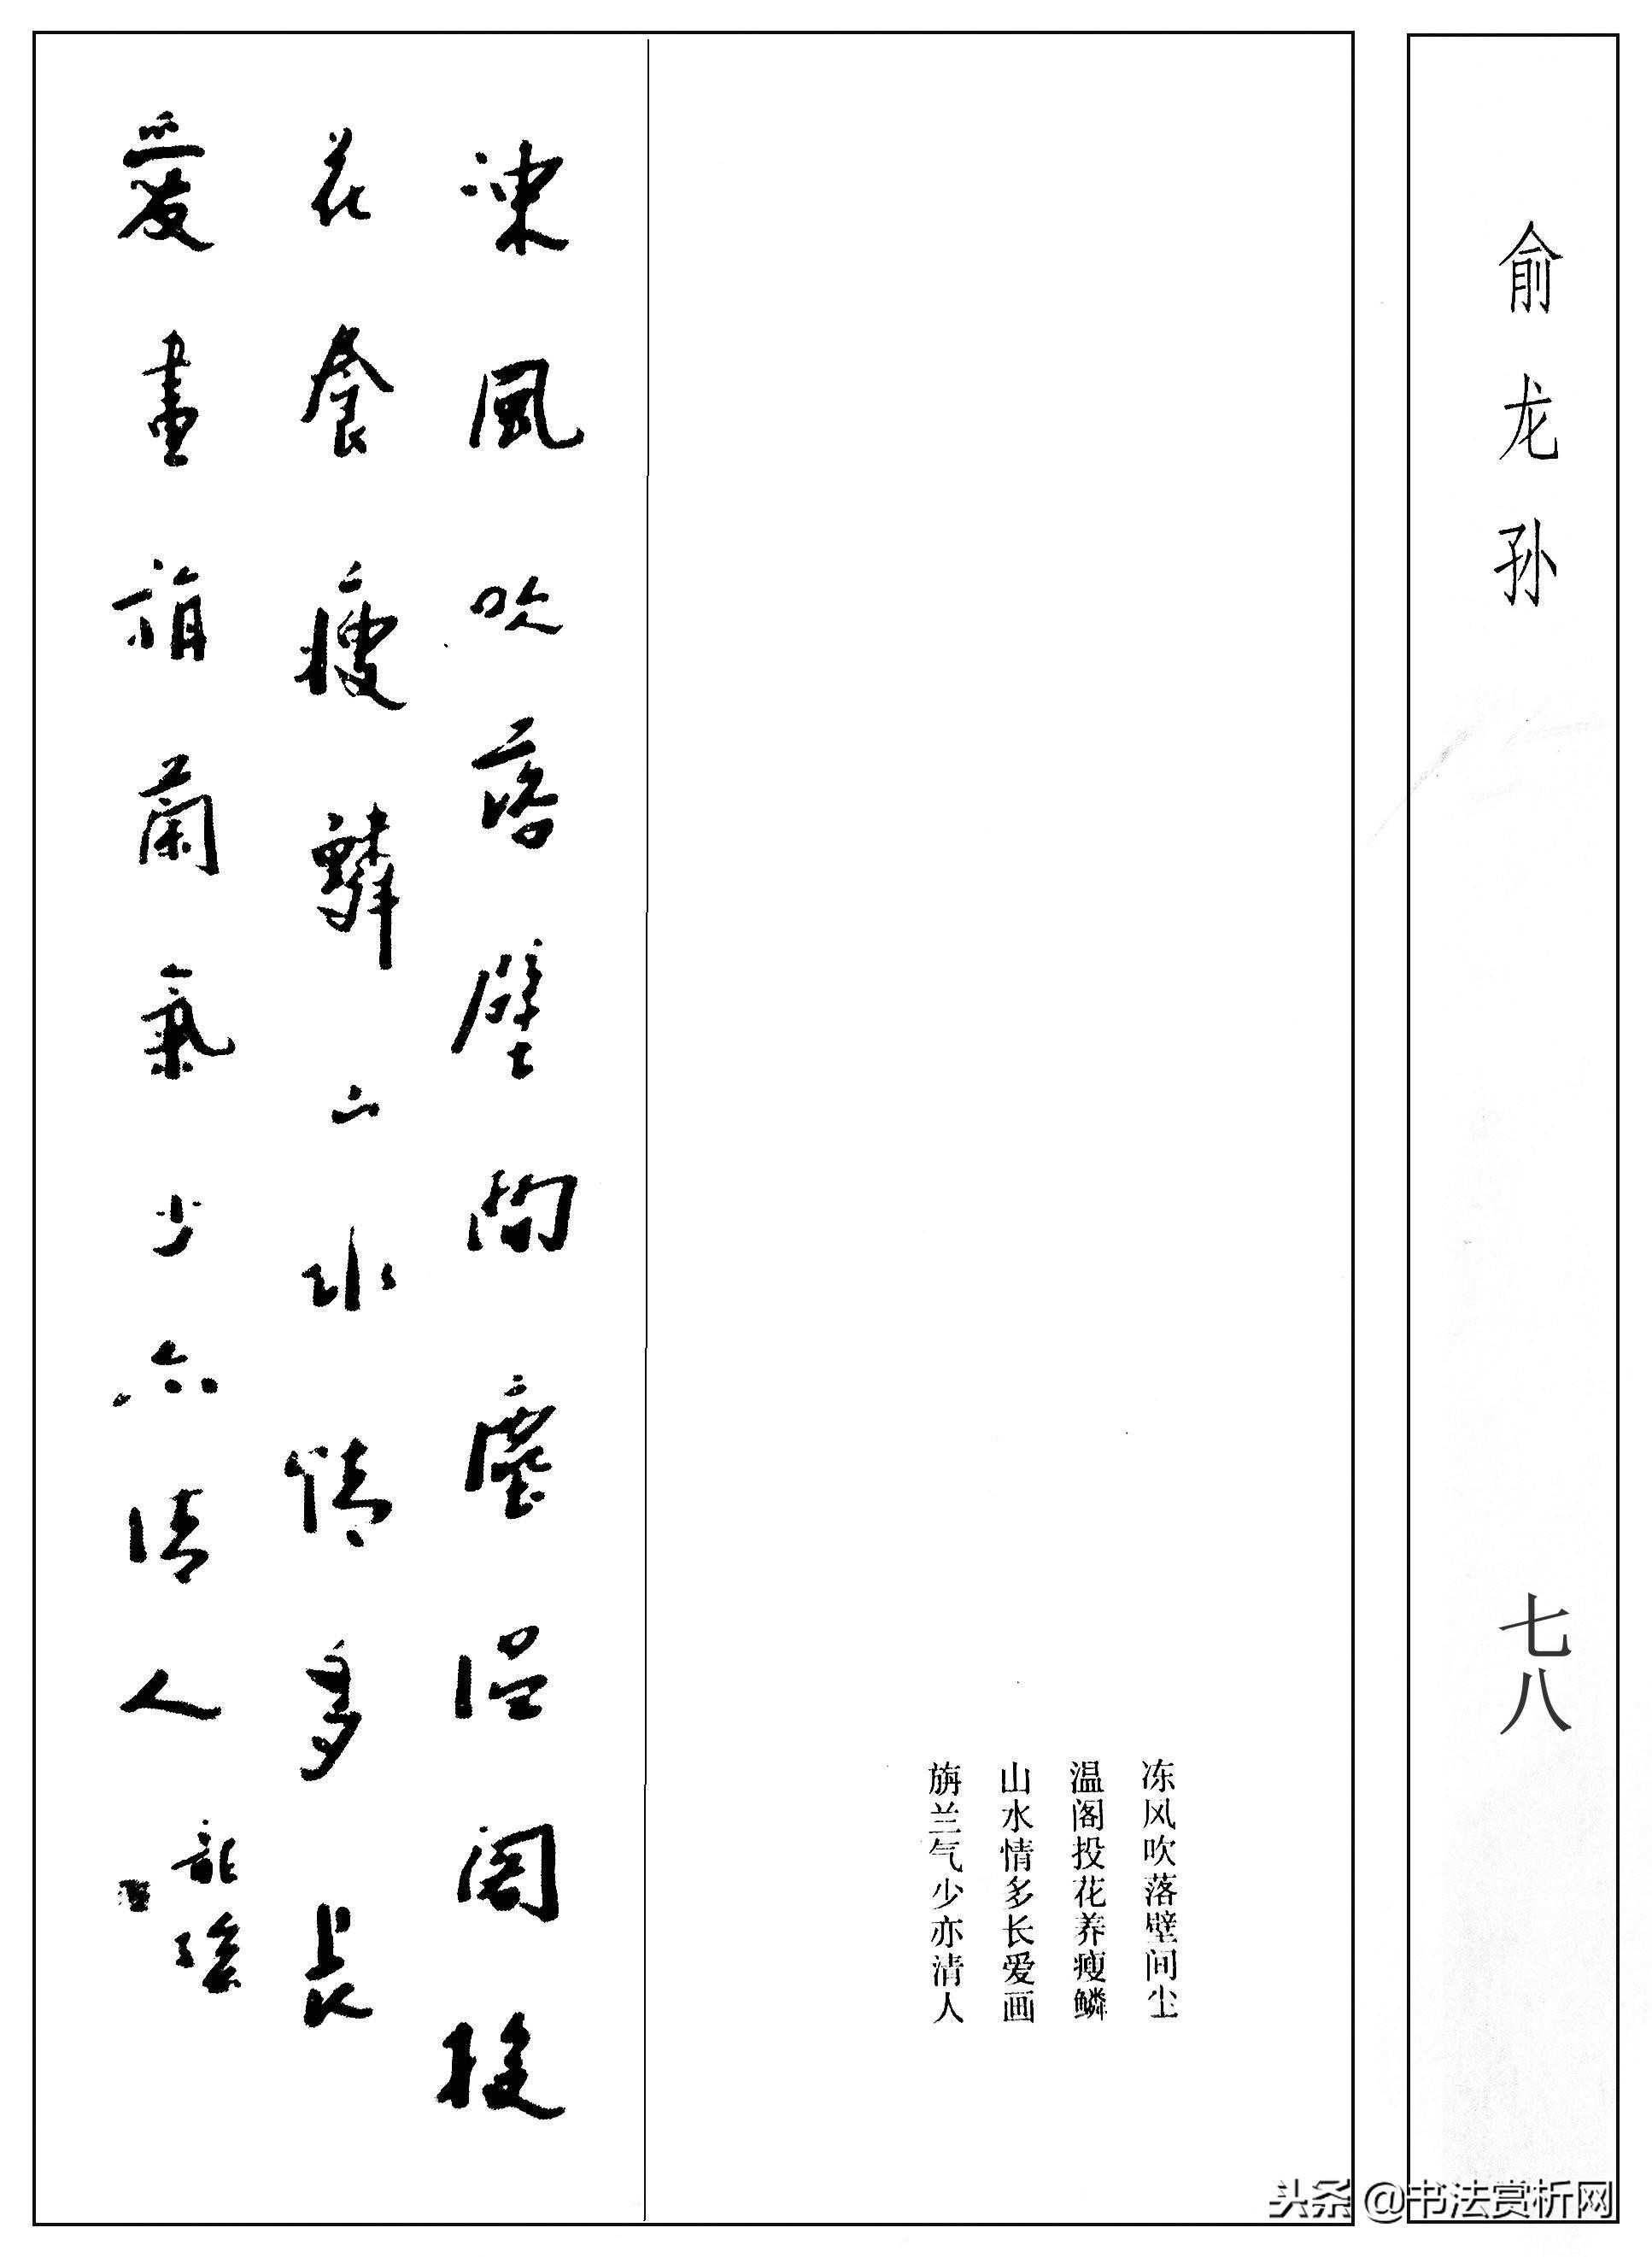 俞龙孙
七八
冻风吹落壁间尘
温阁投花养瘦鳞
山水情多长爱画
旃兰气少亦清人
凍風吹落壁間塵温閣投
花養瘦鱗山水情多長
愛畫旃蘭氣少亦清人
龍孫
头条 @书法赏析网